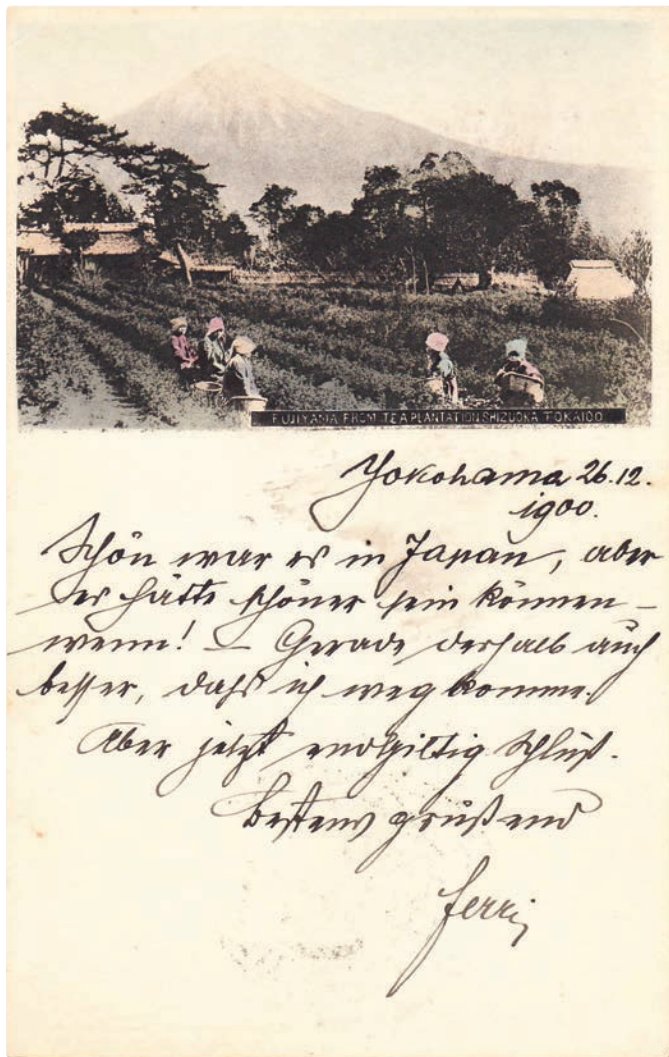 FUJIYAMA FROM TEA PLANTATION SHIZUOKA TOKAIDO
Yokohama 26.12.
1900.
Schön war es in Japan, aber
es hätte schöner sein können –
wenn! – Gerade deshalb auch
besser, daſs ich weg komme.
Aber jetzt endgiltig Schluß.
Bestens grüßend
Ferry